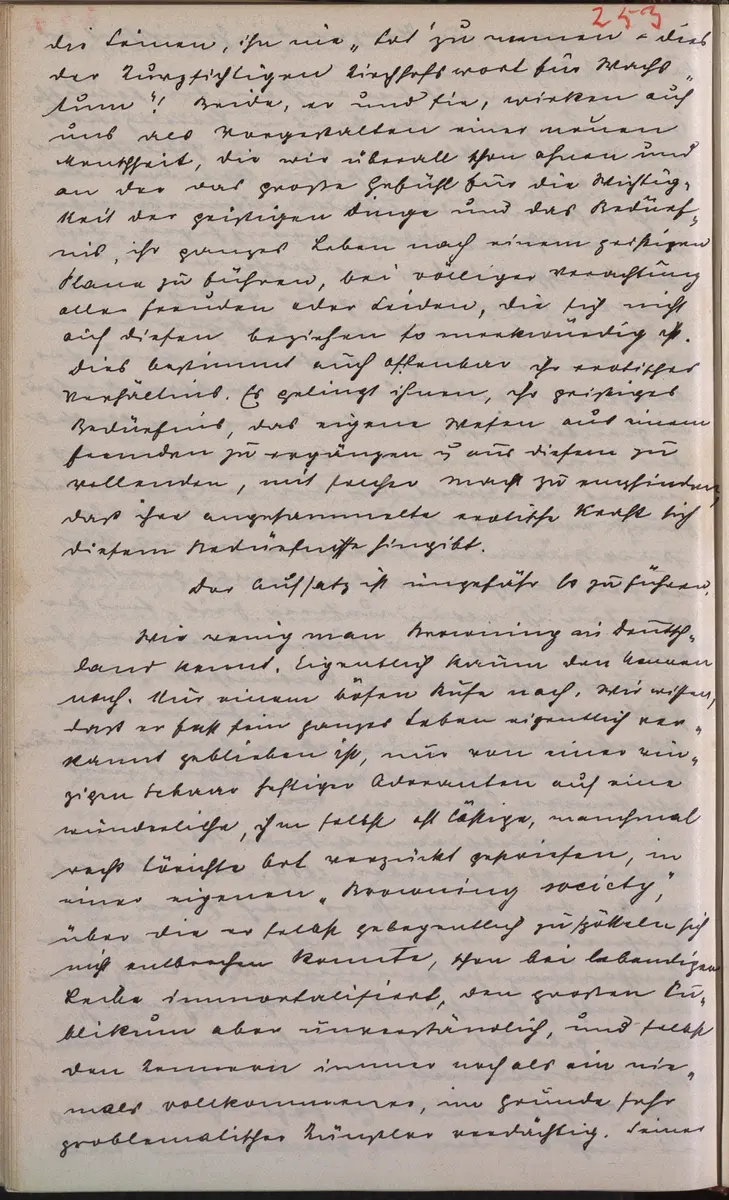 253
die Seinen, ihn nie „tot" zu nennen – dies
der Kurzsichtigen Kirchhofswort für Wachs„
tum"! Beide, er und sie, wirken auf
uns als Vorgestalten einer neuen
Menschheit, die wir überall schon ahnen und
an der das große Gefühl für die Wichtig„
keit der geistigen Dinge und das Bedürf„
nis, ihr ganzes Leben nach einem geistigen
Plane zu führen, bei völliger Verachtung
aller Freuden oder Leiden, die sich nicht
auf diesen beziehen so merkwürdig ist.
Dies bestimmt auch offenbar ihr erotisches
Verhältnis. Es gelingt ihnen, ihr geistiges
Bedürfnis, das eigene Wesen aus einem
fremden zu ergänzen u aus diesem zu
vollenden, mit solcher Macht zu empfinden,
daß ihre angesammelte erotische Kraft sich
diesem Bedürfnisse hingibt.
Der Aufsatz ist ungefähr so zu führen.
Wie wenig man Browning in Deutsch„
land kennt. Eigentlich kaum den Namen
nach. Nur einem bösen Rufe nach. Wir wissen,
daß er fast sein ganzes Leben eigentlich ver„
kannt geblieben ist, nur von einer ein„
zigen Schaar heftiger Adoranten auf eine
wunderliche, ihm selbst oft lästige, manchmal
recht törichte Art verzückt gepriesen, in
einer eigenen „Browning society",
über die er selbst gelegentlich zu spötteln sich
nicht entbrechen konnte, schon bei lebendigem
Leibe immortalisiert, dem großen Pu„
blikum aber unverständlich, und selbst
den Kennern immer noch als ein nie„
mals vollkommener, im Grunde sehr
problematischer Künstler verdächtig. Seine